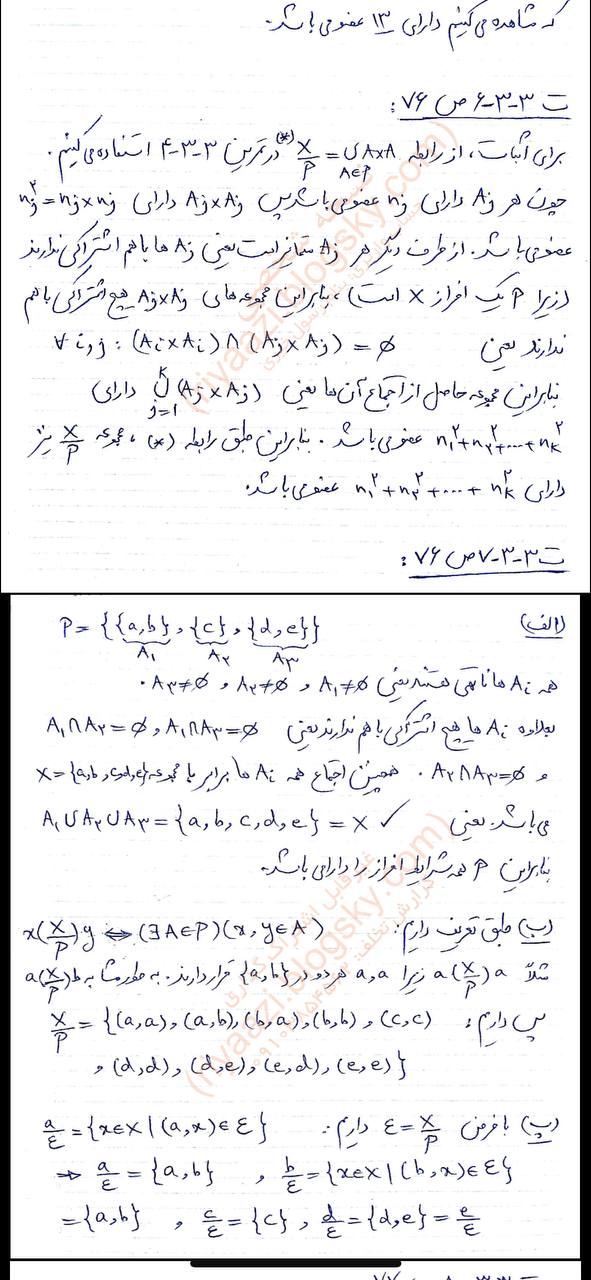 که مشاهده می‌کنیم دارای ۱۳ عضو می‌باشد.
ت ۳-۳-۶ ص ۷۶ :
برای اثبات، از رابطه X/P = ∪_{A∈P} A×A (*) در تمرین ۳-۳-۴ استفاده می‌کنیم.
چون هر Aj دارای nj عضو می‌باشد پس Aj×Aj دارای nj×nj = nj²
عضو می‌باشد. از طرف دیگر هر Aj متمایز است یعنی Aj ها باهم اشتراکی ندارند
(زیرا P یک افراز X است)، بنابراین مجموعه‌های Aj×Aj هیچ اشتراکی باهم
ندارند یعنی ∀ i و j : (Ai×Ai) ∩ (Aj×Aj) = ∅
بنابراین مجموعه حاصل از اجتماع آن‌ها یعنی ∪_{j=1}^{k} (Aj×Aj) دارای
n₁²+n₂²+...+nk² عضو می‌باشد. بنابراین طبق رابطه (*)، مجموعه X/P نیز
دارای n₁²+n₂²+...+nk² عضو می‌باشد.
ت ۳-۳-۷ ص ۷۶ :
الف) P = {{a,b} , {c} , {d,e}}
A₁ A₂ A₃
همه Ai ها ناتهی هستند یعنی A₁≠∅ و A₂≠∅ و A₃≠∅ .
بعلاوه Ai ها هیچ اشتراکی باهم ندارند یعنی A₁∩A₃=∅ و A₁∩A₂=∅
و A₂∩A₃=∅ . همچنین اجتماع همه Ai ها برابر با مجموعه X={a,b,c,d,e}
می‌باشد. یعنی A₁∪A₂∪A₃={a,b,c,d,e}=X ✓
بنابراین P همه شرایط افراز را دارا می‌باشد.
ب) طبق تعریف داریم: x(X/P)y ⇔ (∃A∈P)(x,y∈A)
مثلاً a(X/P)a زیرا a,a هر دو در {a,b} قرار دارند. به طور مشابه a(X/P)b
پس داریم: X/P = {(a,a),(a,b),(b,a),(b,b),(c,c)
,(d,d),(d,e),(e,d),(e,e)}
پ) با فرض ε = X/P داریم: a/ε = {x∈X | (a,x)∈ε}
⇒ a/ε = {a,b} , b/ε = {x∈X | (b,x)∈ε}
={a,b} , c/ε={c} , d/ε={d,e}=e/ε
(riyaazi.blogsky.com)
(riyaazi.blogsky.com)